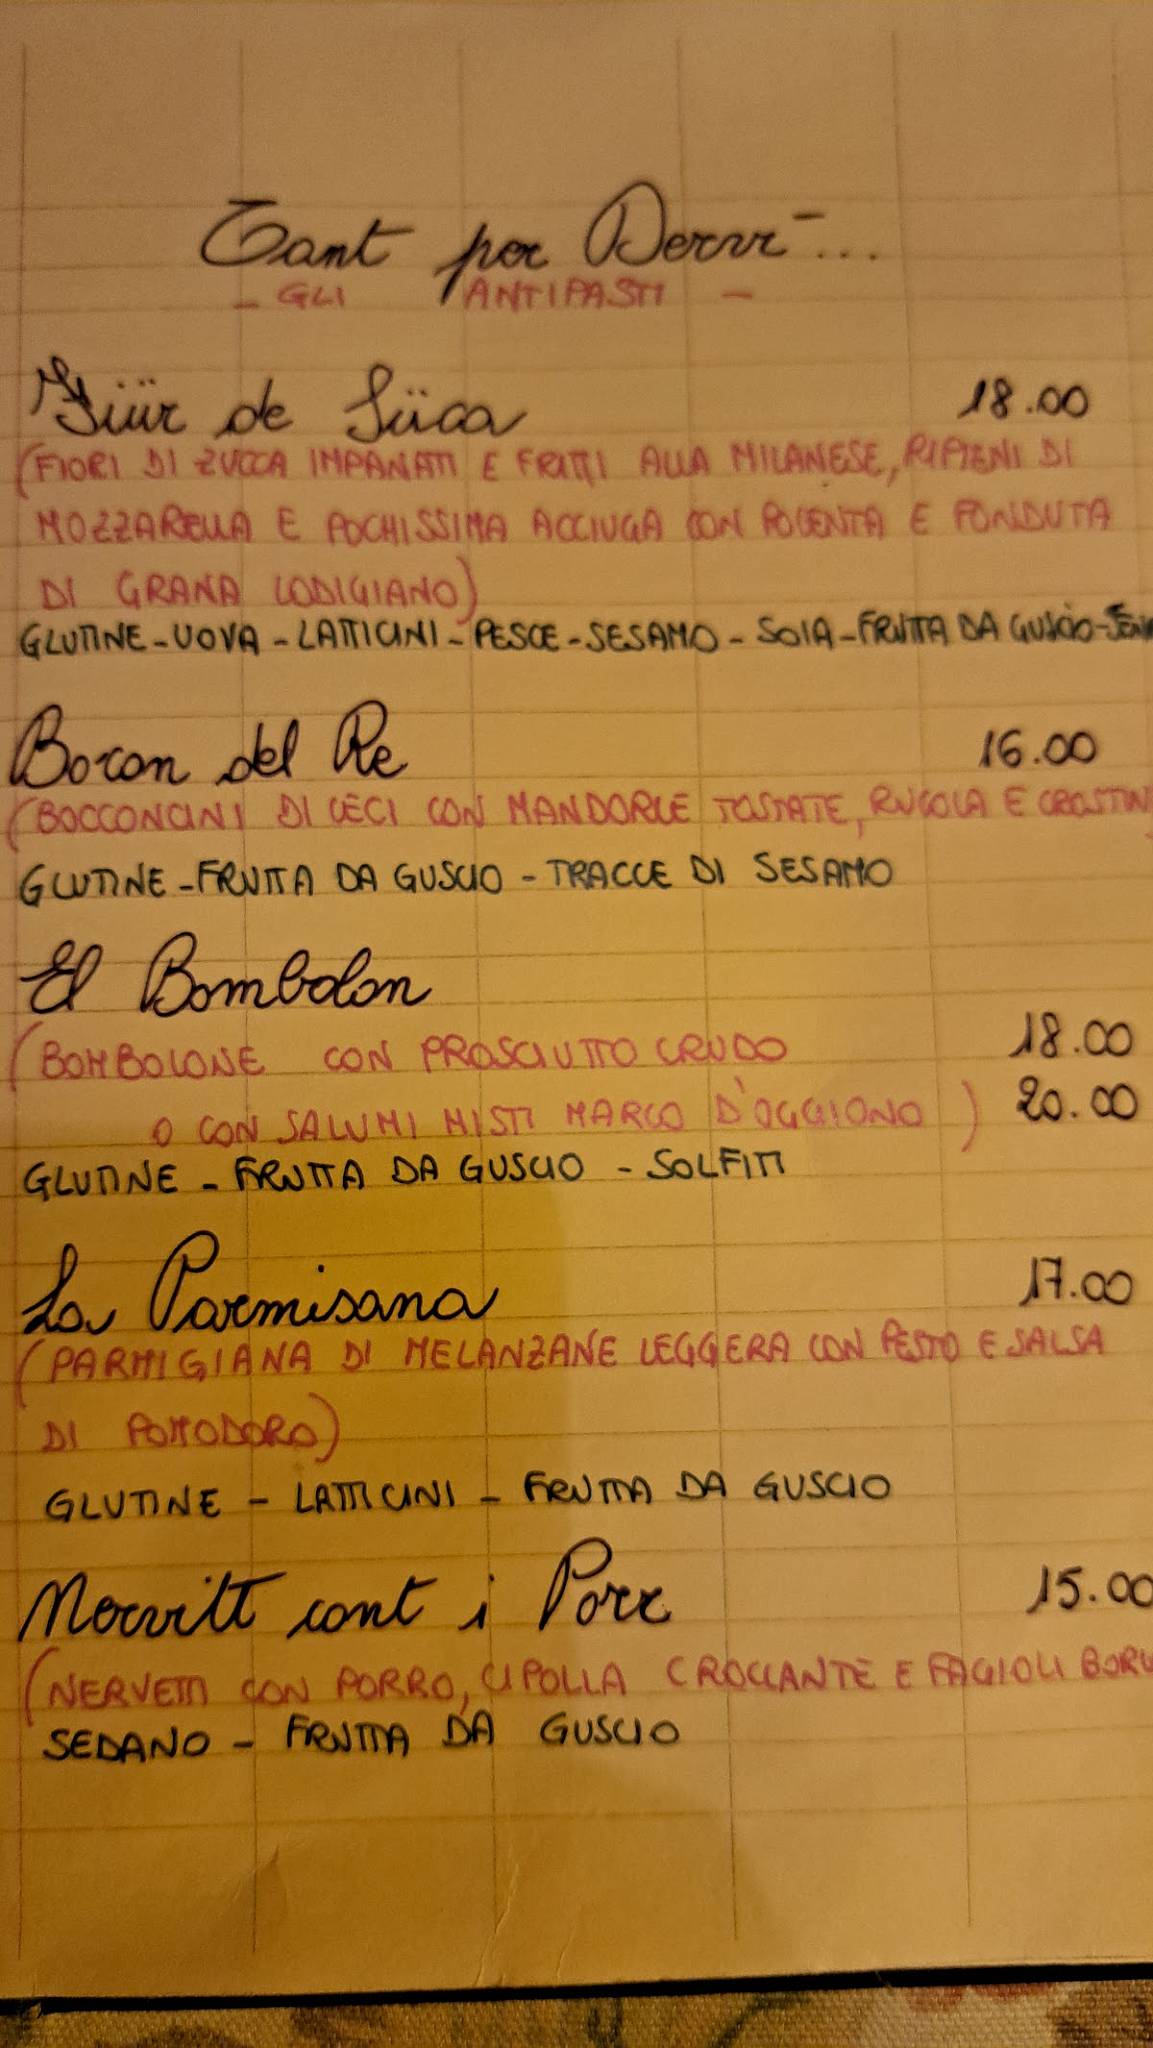 Tant per Dervi...
- GLI ANTIPASTI -
Fiüur de Süca 18.00
(FIORI DI ZUCCA IMPANATI E FRITTI ALLA MILANESE, RIPIENI DI
MOZZARELLA E POCHISSIMA ACCIUGA CON POLENTA E FONDUTA
DI GRANA LODIGIANO)
GLUTINE-UOVA-LATTICINI-PESCE-SESAMO-SOIA-FRUTTA DA GUSCIO-
Bocon del Re 16.00
(BOCCONCINI DI CECI CON MANDORLE TOSTATE, RUCOLA E CROSTIN
GLUTINE-FRUTTA DA GUSCIO-TRACCE DI SESAMO
El Bombolon
(BOMBOLONE CON PROSCIUTTO CRUDO 18.00
O CON SALUMI MISTI MARCO D'OGGIONO) 20.00
GLUTINE - FRUTTA DA GUSCIO - SOLFITI
La Parmisana 17.00
(PARMIGIANA DI MELANZANE LEGGERA CON PESTO E SALSA
DI POMODORO)
GLUTINE - LATTICINI - FRUTTA DA GUSCIO
Nervitt cont i Porr 15.00
(NERVETTI CON PORRO, CIPOLLA CROCCANTE E FAGIOLI BORL
SEDANO - FRUTTA DA GUSCIO